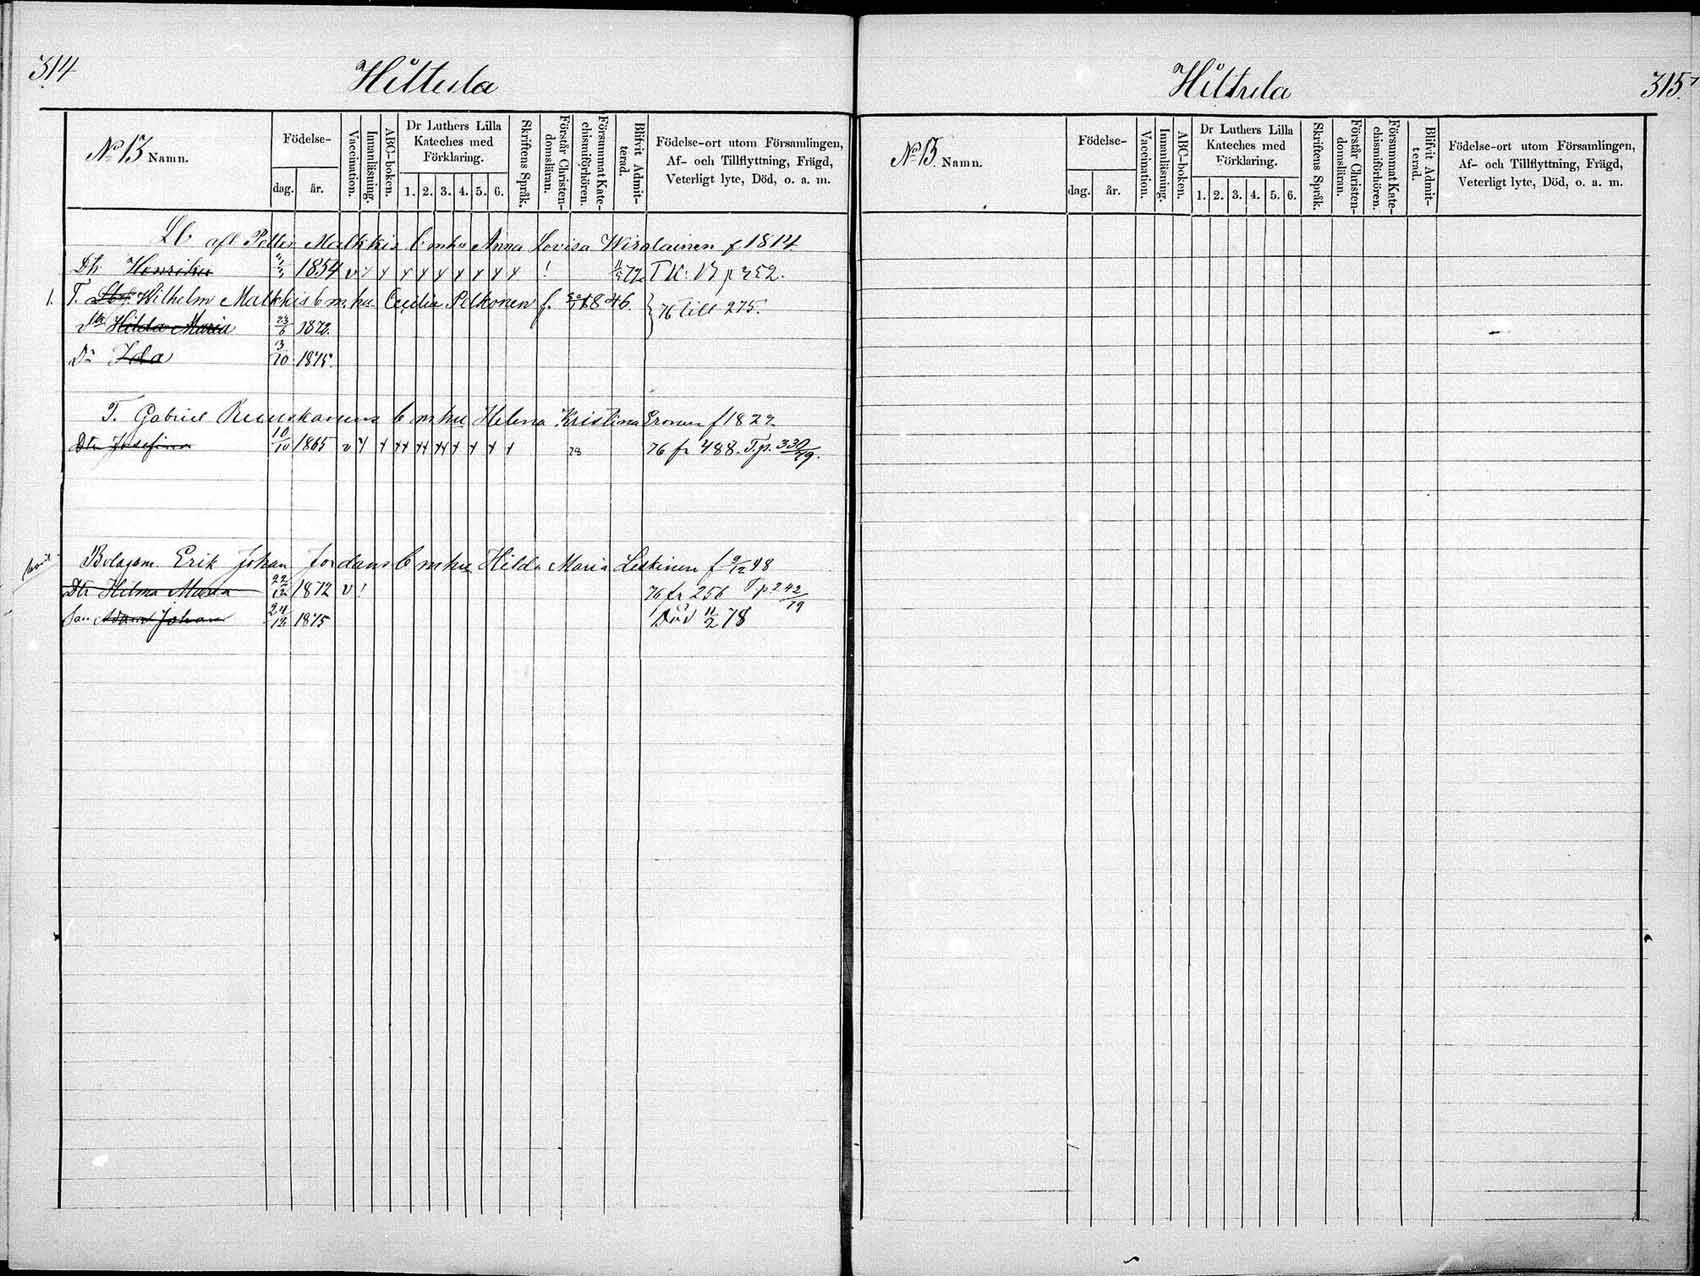 314
Hiltula
No 13 Namn.
Födelse-
dag. år.
Vaccination.
Innanläsning.
ABC-boken.
Dr Luthers Lilla
Kateches med
Förklaring.
1. 2. 3. 4. 5. 6.
Skriftens Språk.
Förstår Christen-
domsläran.
Försummat Kate-
chismiförhören.
Blifvit Admit-
terad.
Födelse-ort utom Församlingen,
Af- och Tillflyttning, Frägd,
Veterligt lyte, Död, o. a. m.
Lb afl Petter Malkkis b m hu Anna Lovisa f 1814
Dtr Henrika 1854
1. T. Wilhelm Malkkis b m hu Cecilia Pelkonen f. 1846.
Hilda Maria 23/6 1872. 76 till 275.
Dr Ida 3/10 1875.
T. Gabriel b m hu Helena Kristina f 1822
Dtr Josefina 10/10 1865 78 76 fr 488. T.p. 330/79.
Erik Johan Jordans b m hu Hilda Maria Leskinen f 9/12 48
Dtr Hilma Maria 22/12 1872 v ! 76 fr 256 T p 242/79
Son Adam Johan 24/12 1875 Död 11/2 78
Hiltula
315
No 13. Namn.
Födelse-
dag. år.
Vaccination.
Innanläsning.
ABC-boken.
Dr Luthers Lilla
Kateches med
Förklaring.
1. 2. 3. 4. 5. 6.
Skriftens Språk.
Förstår Christen-
domsläran.
Försummat Kate-
chismiförhören.
Blifvit Admit-
terad.
Födelse-ort utom Församlingen,
Af- och Tillflyttning, Frägd,
Veterligt lyte, Död, o. a. m.